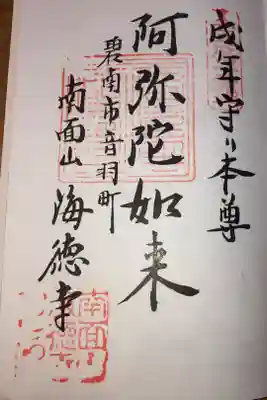 戌年守り本尊
阿弥陀如来
碧南市音羽町
南面山
海徳寺